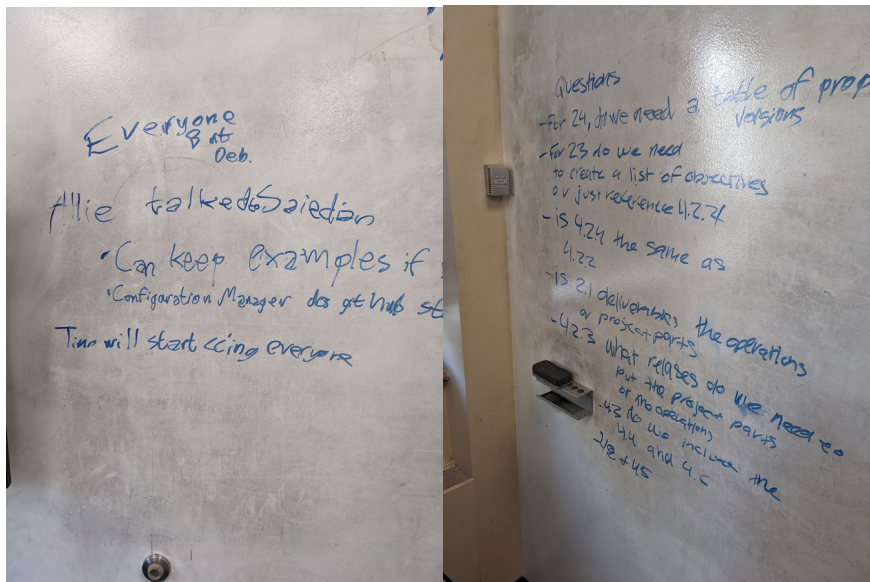 Everyone
But
Deb.
Allie talked to Saiedian
• Can keep examples if
• Configuration Manager does github
Timo will start ccing everyone
Questions
- For 2.4, do we need a table of prop
versions
- For 2.3 do we need
to create a list of objectives
or just reference 4.2.2
- is 4.2.4 the same as
4.2.2
- is 2.1 deliverables the operations
or project parts
- 4.2.3 what relases do we need to
put the project parts
or the operations
- 4.3 do we include the
4.4 and 4.5